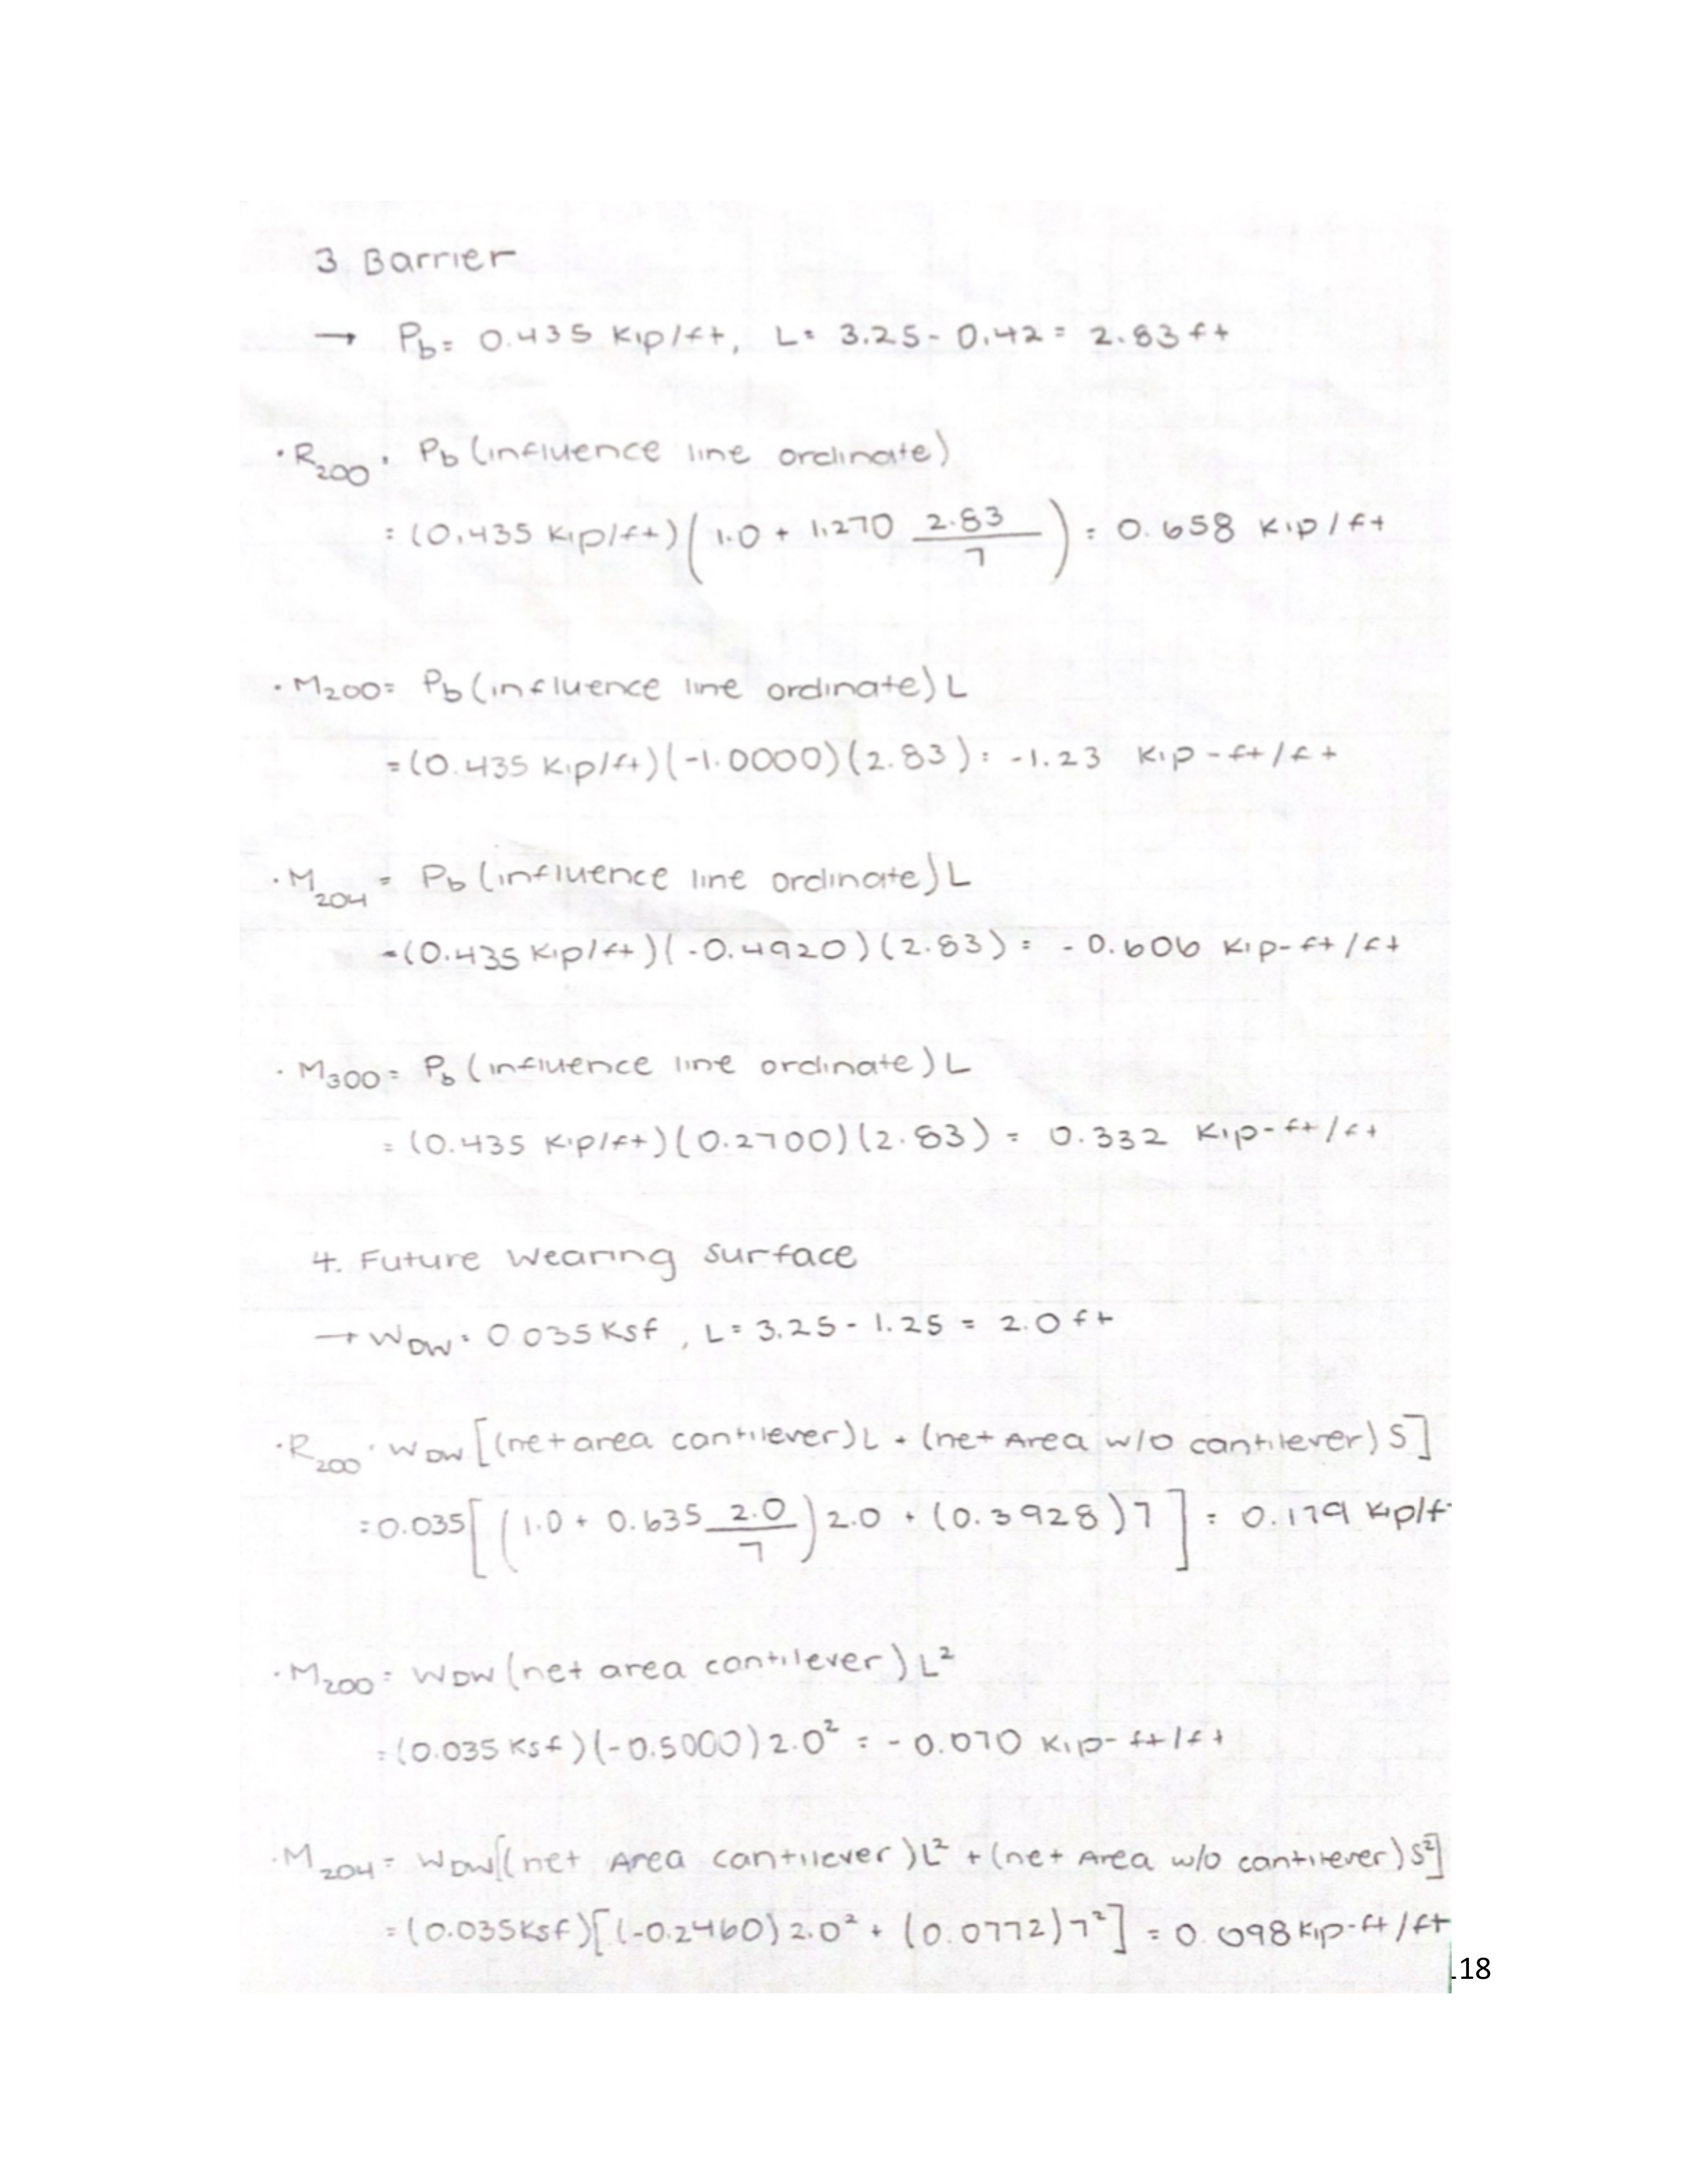 3 Barrier
→ Pb = 0.435 Kip/ft, L = 3.25 - 0.42 = 2.83 ft
· R200 = Pb (influence line ordinate)
= (0.435 Kip/ft) (1.0 + 1.270 2.83/7) = 0.658 Kip/ft
· M200 = Pb (influence line ordinate) L
= (0.435 Kip/ft)(-1.0000)(2.83) = -1.23 Kip-ft/ft
· M204 = Pb (influence line ordinate) L
= (0.435 Kip/ft)(-0.4920)(2.83) = -0.606 Kip-ft/ft
· M300 = Pb (influence line ordinate) L
= (0.435 Kip/ft)(0.2700)(2.83) = 0.332 Kip-ft/ft
4. Future Wearing Surface
→ WDW = 0.035 Ksf, L = 3.25 - 1.25 = 2.0 ft
· R200 = WDW [(net area cantilever) L + (net Area w/o cantilever) S]
= 0.035 [(1.0 + 0.635 2.0/7) 2.0 + (0.3928) 7] = 0.179 Kip/f
· M200 = WDW (net area cantilever) L²
= (0.035 Ksf)(-0.5000) 2.0² = -0.070 Kip-ft/ft
· M204 = WDW [(net Area cantilever) L² + (net Area w/o cantilever) S²]
= (0.035 Ksf) [(-0.2460) 2.0² + (0.0772) 7²] = 0.098 Kip-ft/ft
118